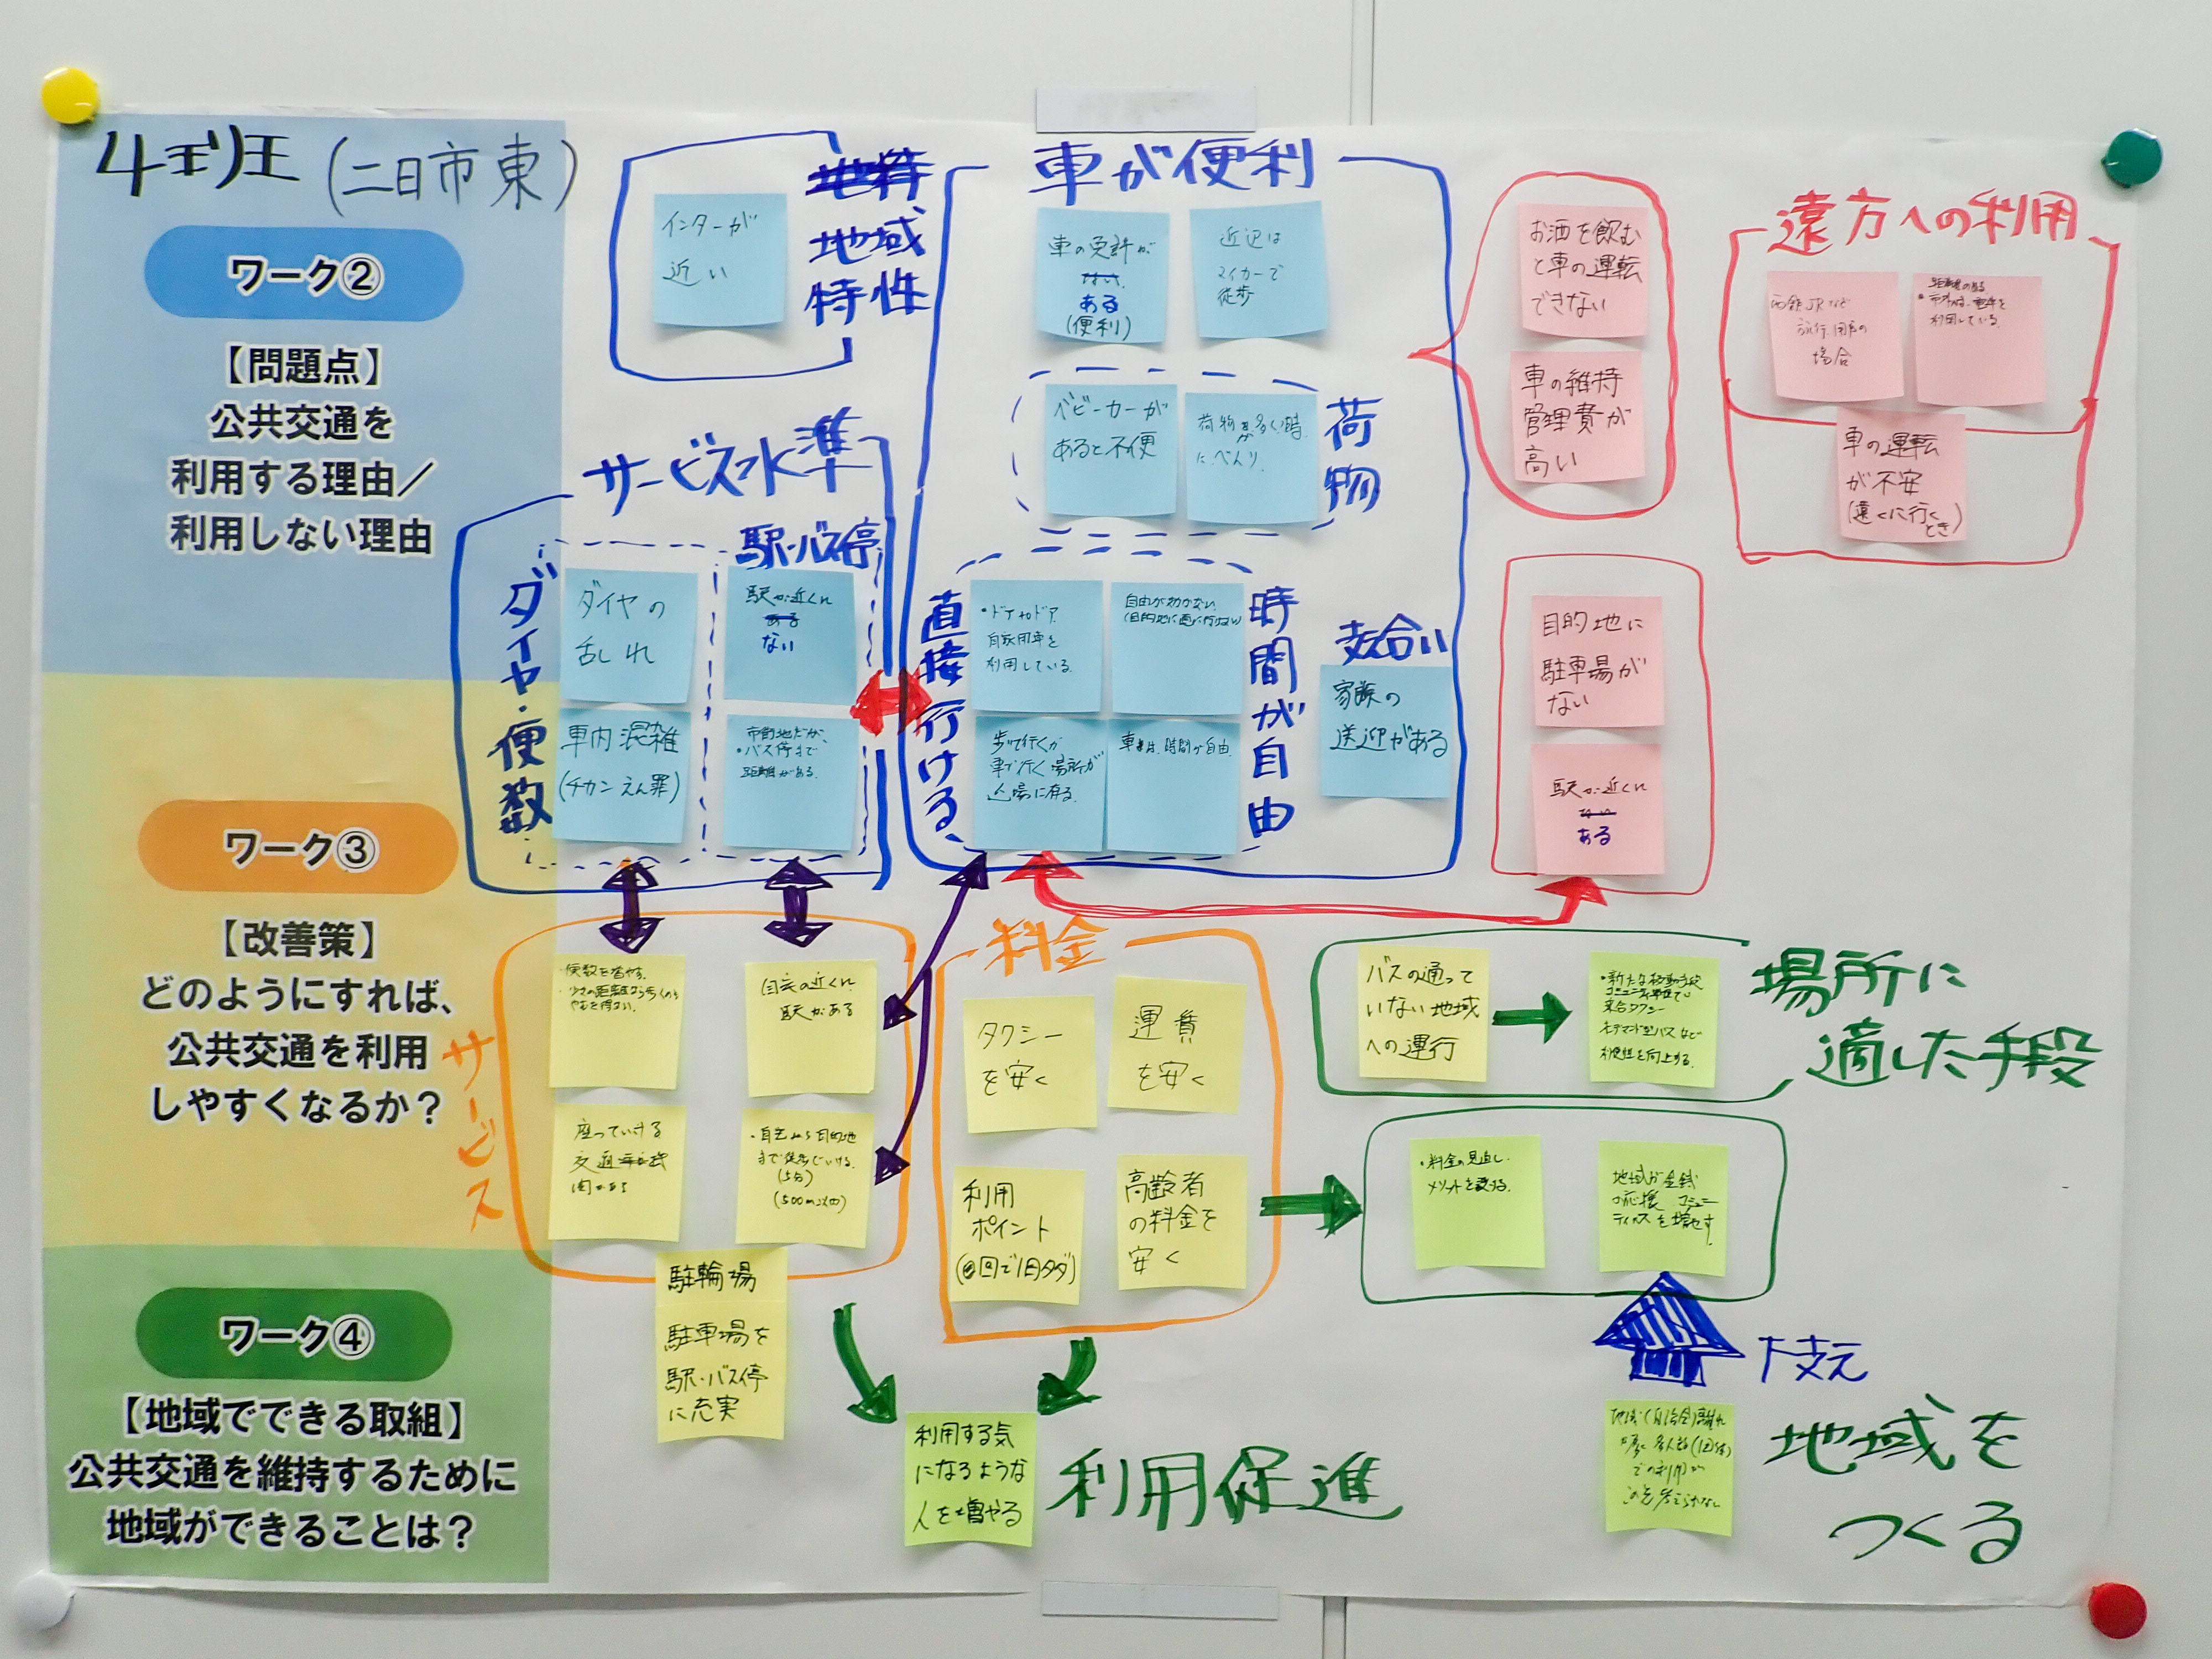 4班(二日市東)
ワーク②
【問題点】
公共交通を
利用する理由／
利用しない理由
ワーク③
【改善策】
どのようにすれば、
公共交通を利用
しやすくなるか？
ワーク④
【地域でできる取組】
公共交通を維持するために
地域ができることは？
地域
特性
インターが
近い
サービス水準
ダイヤ・便数
駅・バス停
ダイヤの
乱れ
車内混雑
(チカンえん罪)
駅が近くに
ある
ない
市街地だが、
・バス停まで
距離がある。
車が便利
車の免許が
ない
ある
(便利)
近辺は
マイカーで
徒歩
荷物
ベビーカーが
あると不便
荷物が多く時
に、べんり、
直接行ける、
時間が自由
・ドアtoドア
自家用車を
利用している。
自由がきかない。
歩いて行くか
車で行く場所が
近場に有る。
車は、時間が自由
支え合い
家族の
送迎がある
お酒を飲む
と車の運転
できない
車の維持
管理費が
高い
目的地に
駐車場が
ない
駅が近くに
ない
ある
遠方への利用
西鉄JRなど
旅行、
場合
距離のある
・市外は、電車を
利用している。
車の運転
が不安
(遠くに行く
とき)
サービス
・便数を増やす。
・少々の距離なら歩くのも
やむを得ない。
自宅の近くに
駅がある
座っていける
交通
関がある
・自宅から目的地
まで徒歩でいける。
(5分)
(500m以内)
駐輪場
駐車場を
駅・バス停
に充実
料金
タクシー
を安く
運賃
を安く
利用
ポイント
回で1日タダ)
高齢者
の料金を
安く
場所に
適した手段
バスの通って
いない地域
への運行
・新たな移動手段
乗合タクシー
オンデマンド型バスなど
利便性を向上する。
・料金の見直し
メリットを設ける。
地域が金銭
の応援、コミュニ
ティバスを増やす。
下支え
地域を
つくる
地域(自治会)離れ
利用する気
になるような
人を増やる
利用促進